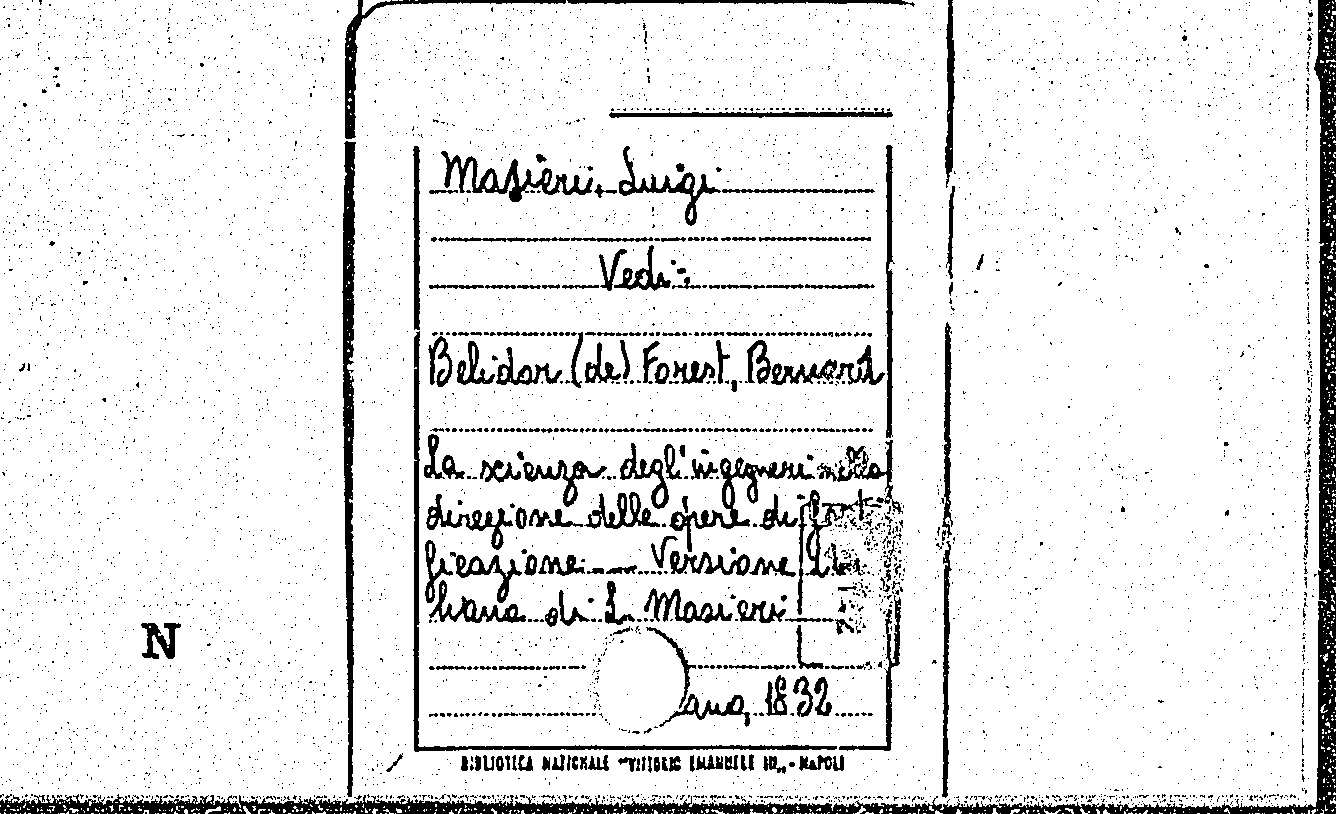 Masieri, Luigi
Vedi:
Belidor (de) Forest, Bernard
La scienza degl'ingegneri nella
direzione delle opere di forti
ficazione __ Versione
liana di L. Masieri
ano, 1832
N
BIBLIOTECA NAZIONALE "VITTORIO EMANUELE III" - NAPOLI